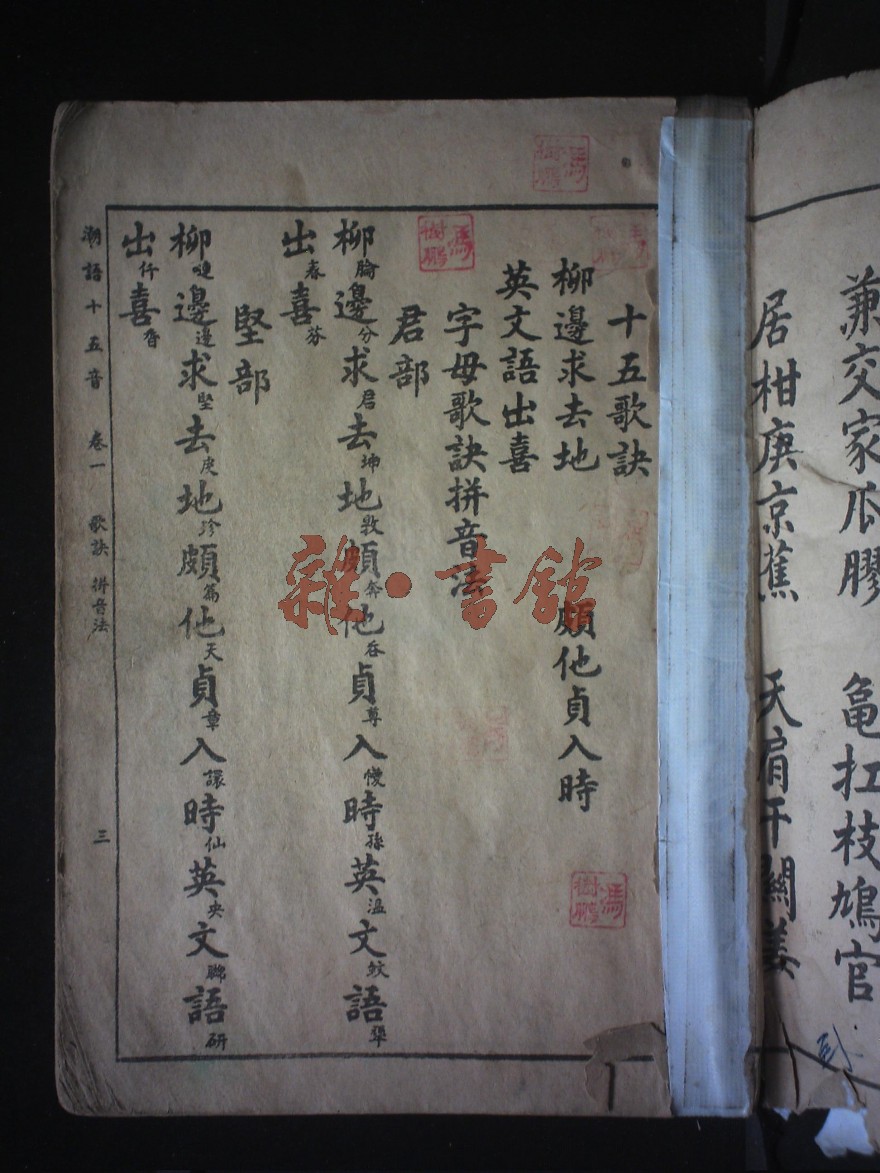 兼交家瓜膠 龜扛枝鳩官
居柑庚京蕉 天肩干關姜
十五歌訣
柳邊求去地 頗他貞入時
英文語出喜
字母歌訣拼音法
君部
柳腀邊分求君去坤地敦頗奔他吞貞尊入慢時孫英溫文蚊語
出春喜芬
堅部
柳嗹邊邊求堅去虔地珍頗篇他天貞章入讓時仙英央文聯語研
出仟喜香
潮語十五音 卷一 歌訣 拼音法 三
雜·書館
馮樹鵬
馮樹鵬
馮樹鵬